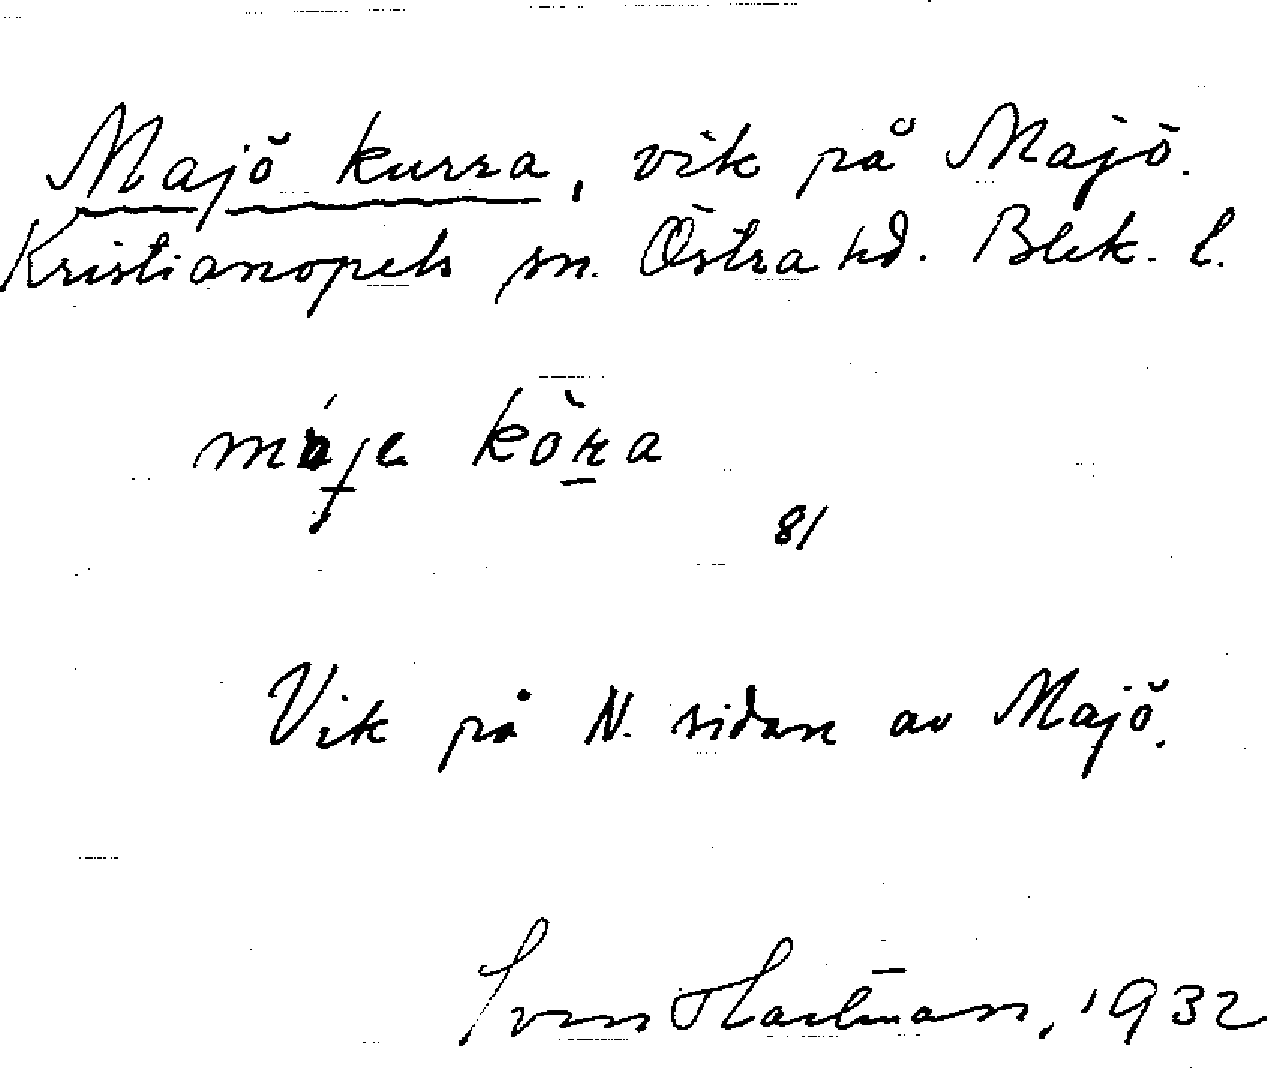 Majö kurra, vik på Majö.
Kristianopels sn. Östra hd. Blek. l.
máje kòra
81
Vik på N. sidan av Majö.
Sven Hartman, 1932